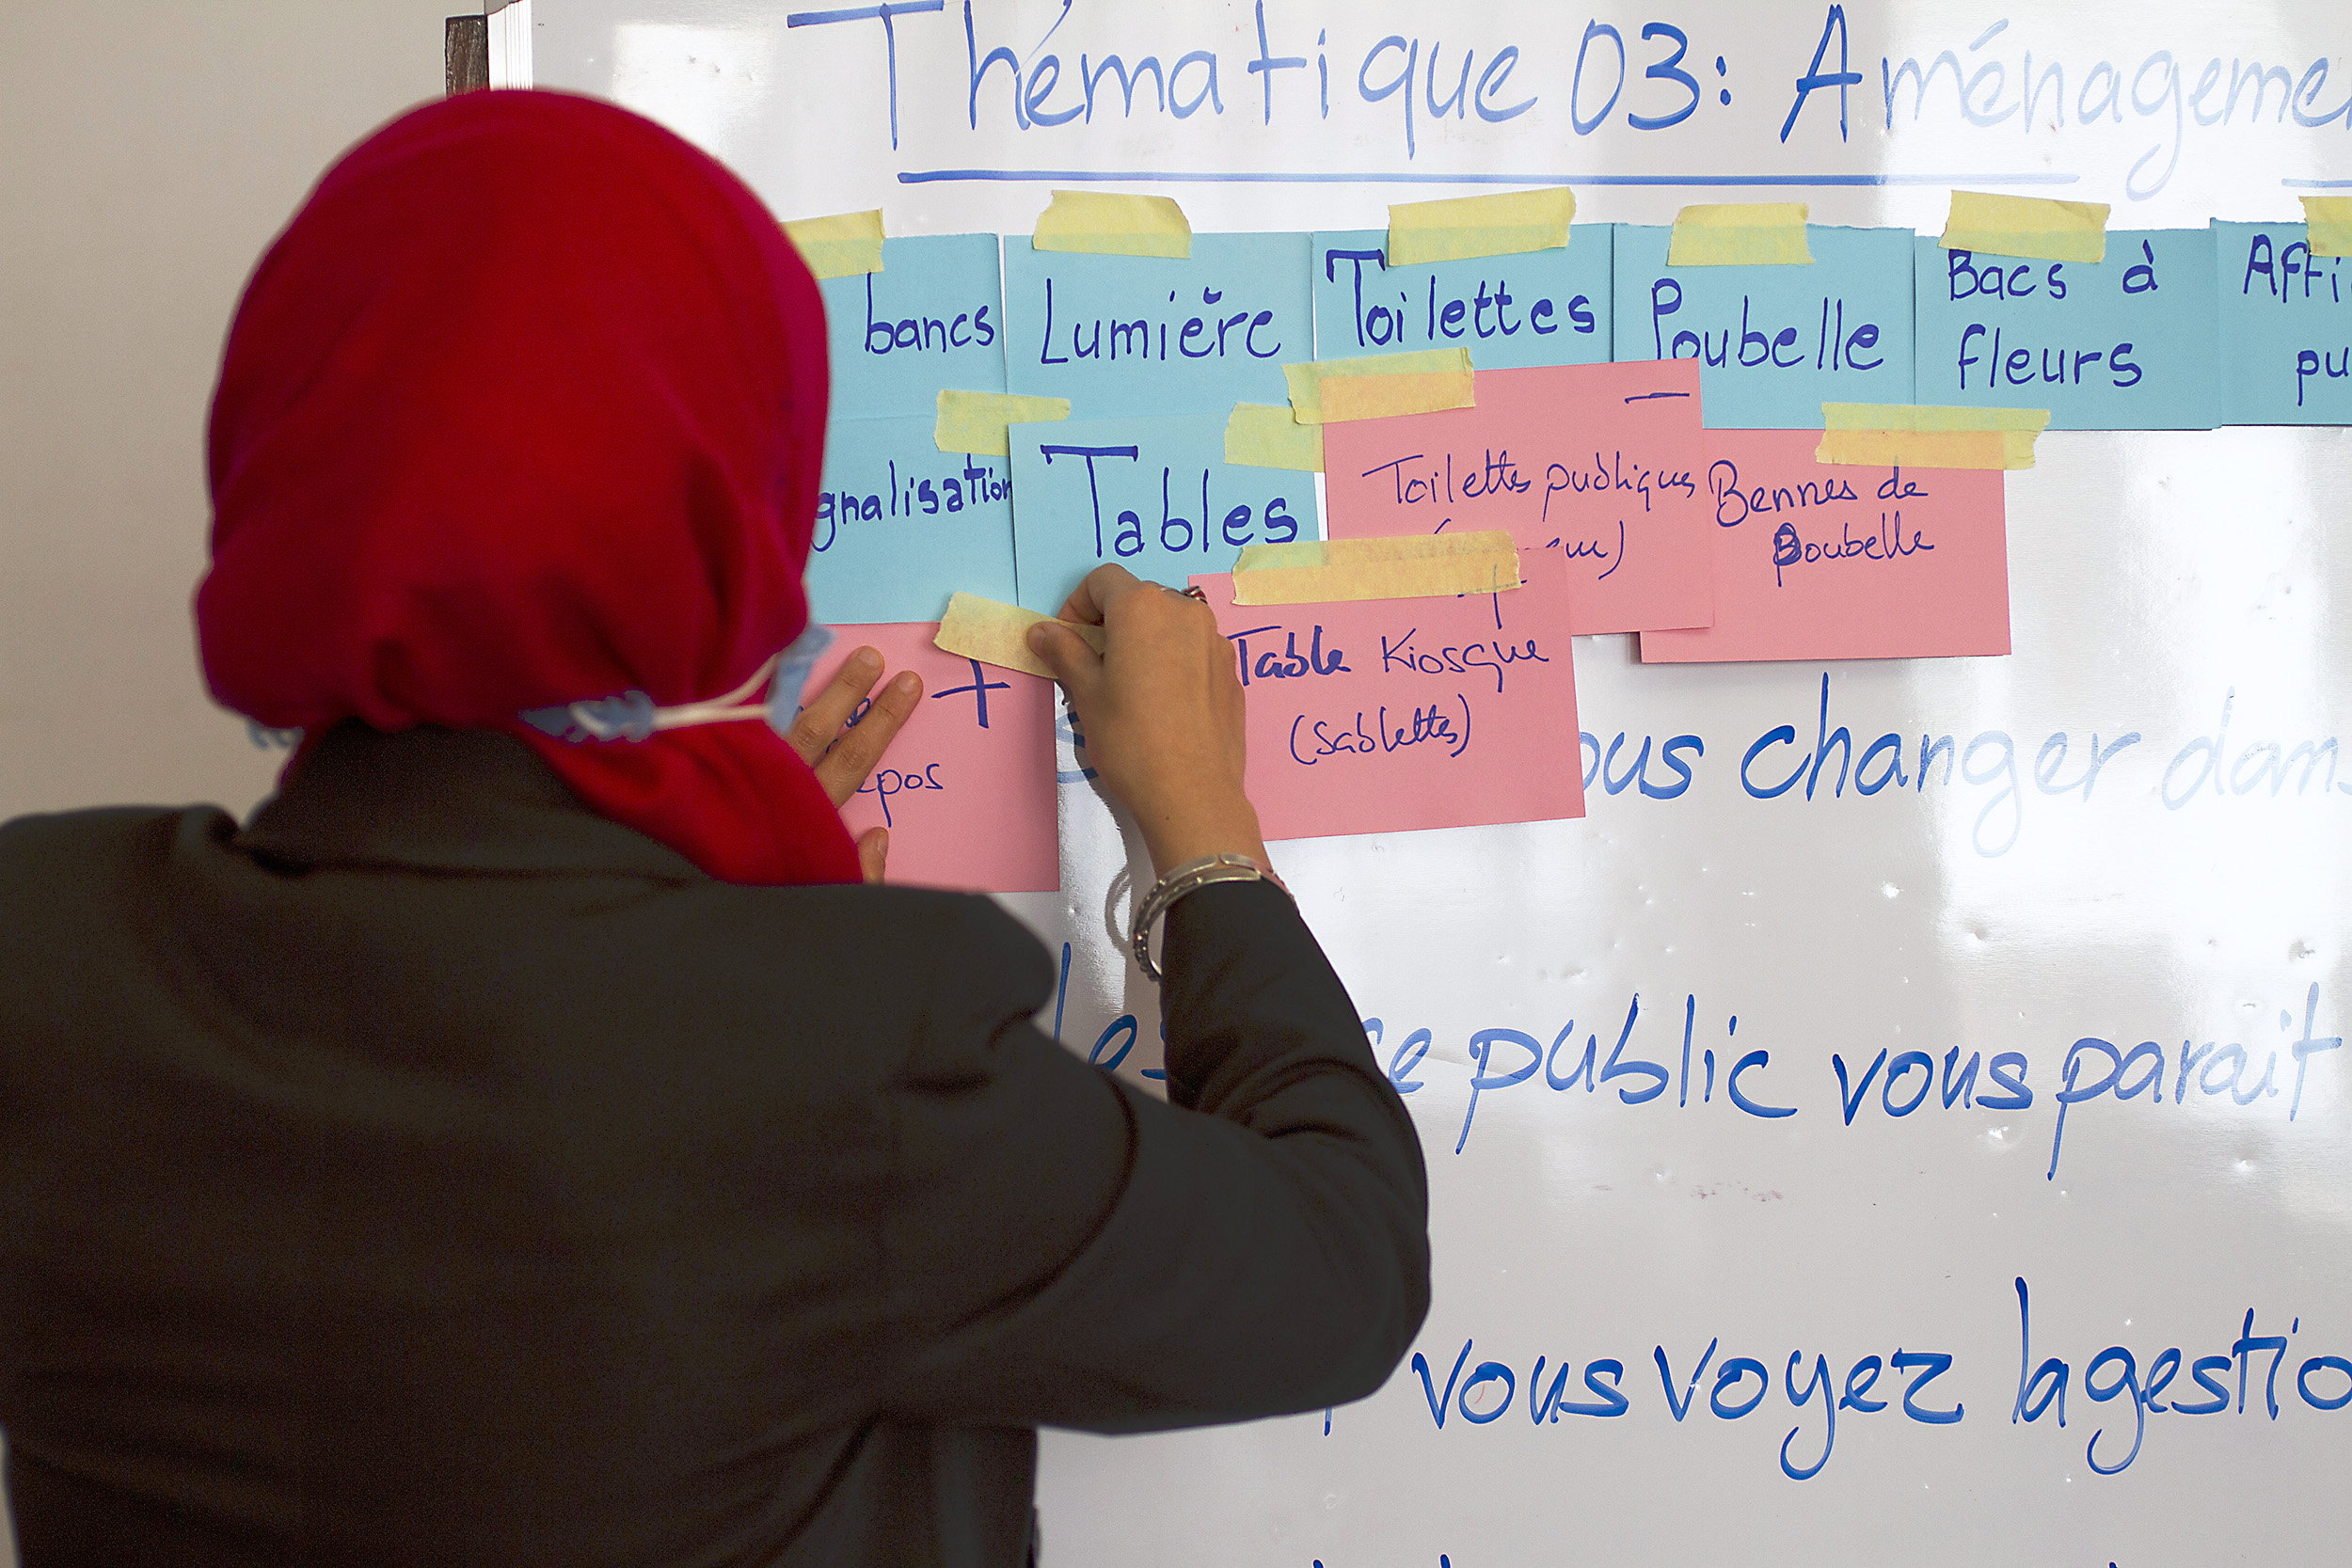 Thématique 03: Aménageme
bancs
Lumière
Toilettes
Poubelle
Bacs à
fleurs
Affi
pu
gnalisation
Tables
Toilettes publiques
Bennes de
Poubelle
+
epos
Table Kiosque
(Sablettes)
ous changer dans
le public vous parait
vous voyez la gestio